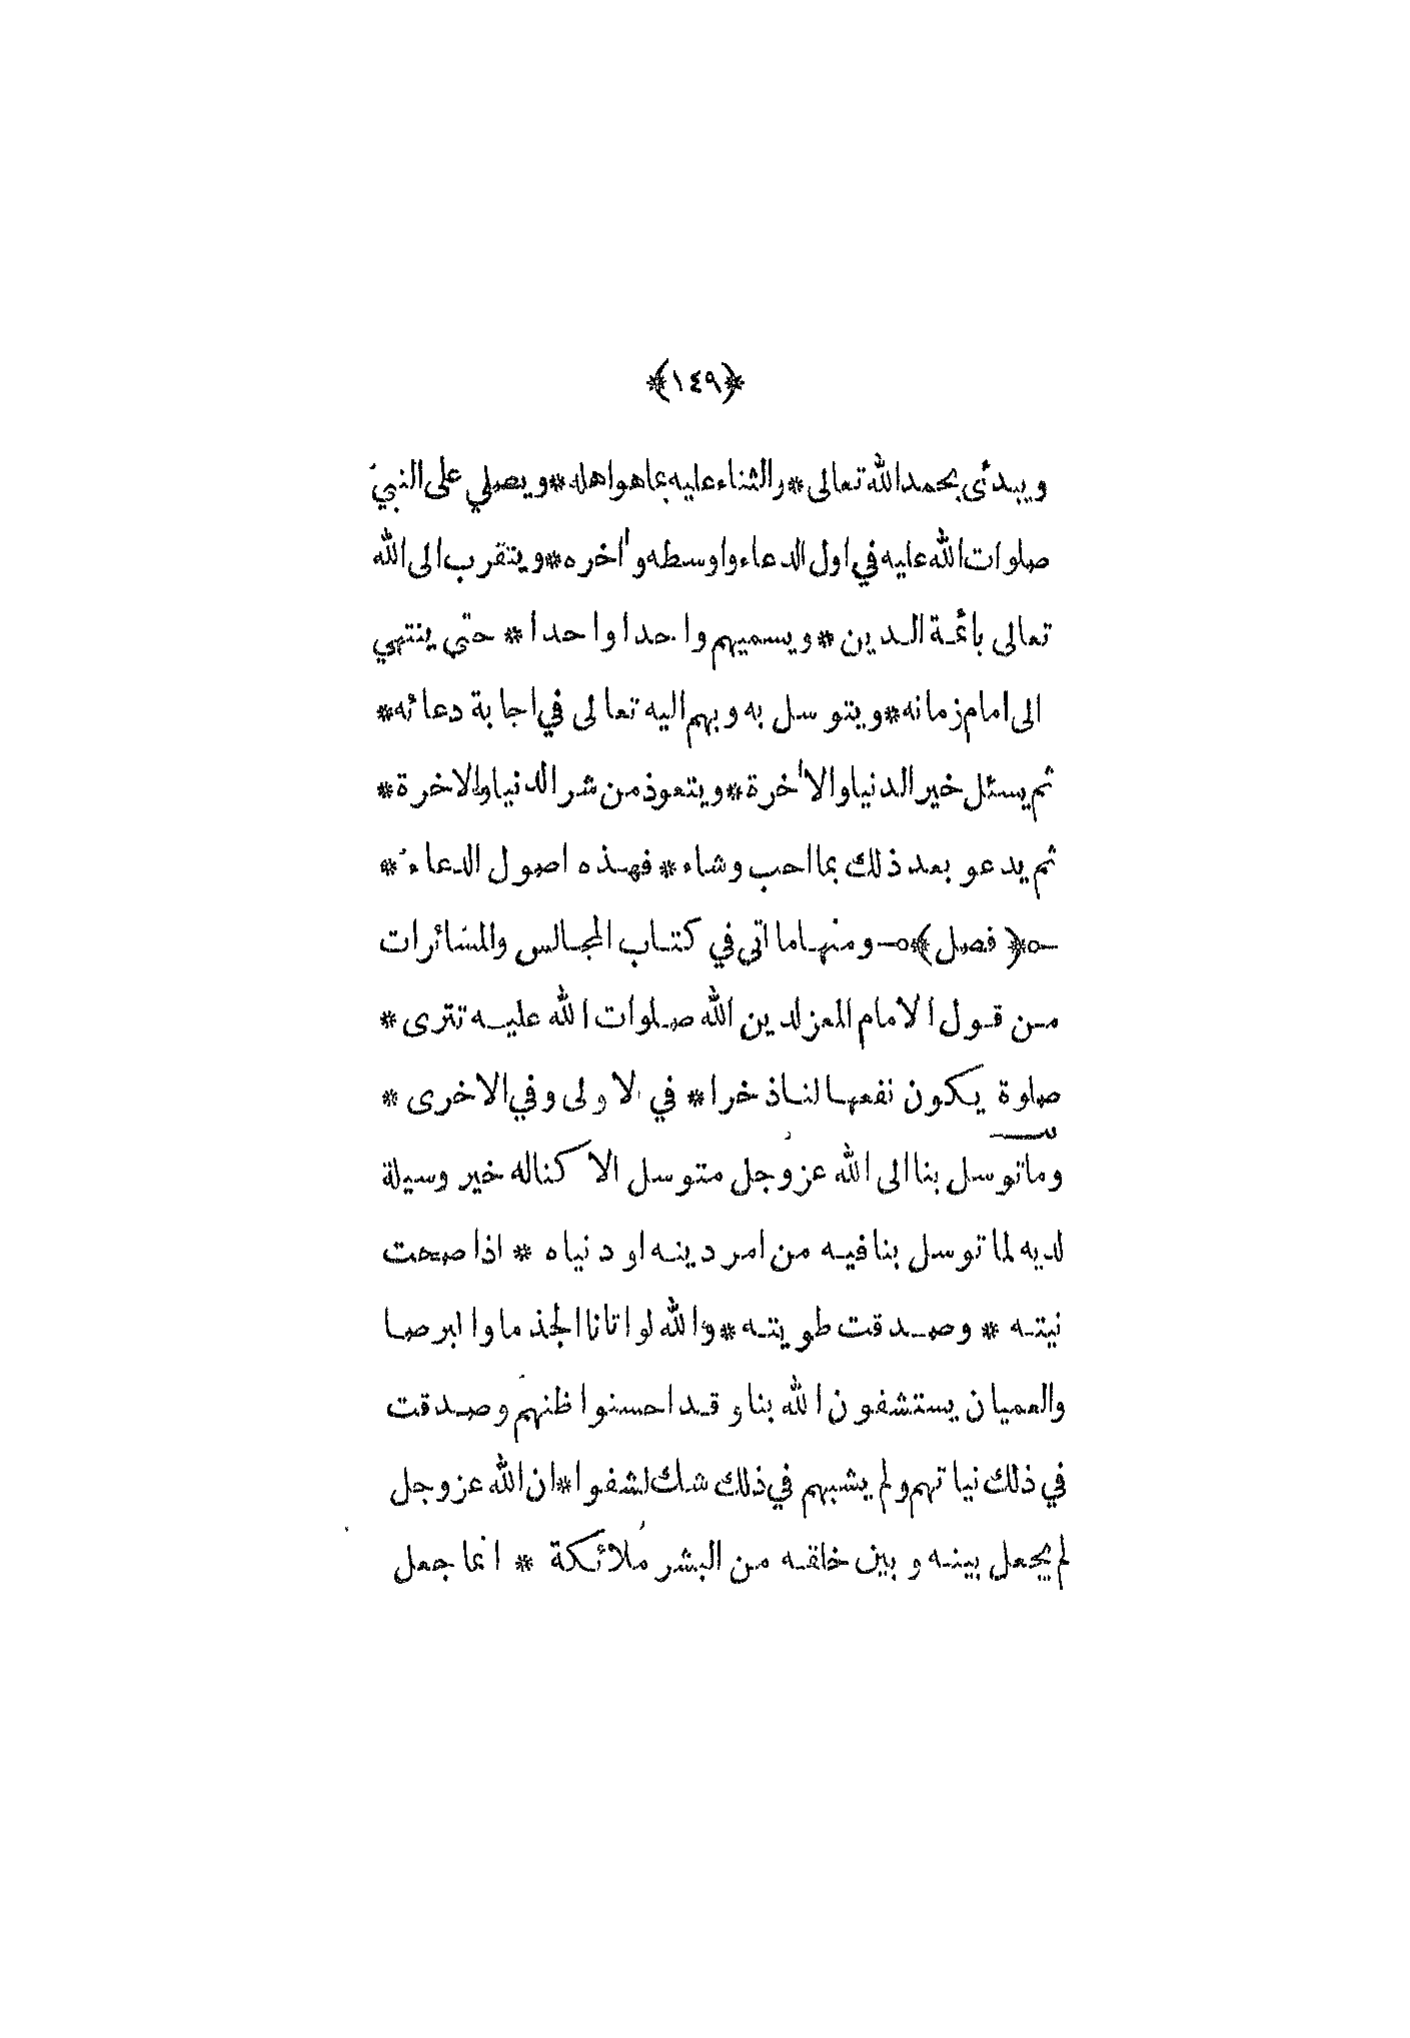 ﴿١٤٩﴾
ويبدئ بحمد الله تعالى * والثناء عليه بما هو اهله * ويصلي على النبي
صلوات الله عليه في اول الدعاء واوسطه وأاخره * ويتقرب الى الله
تعالى بائمة الدين * ويسميهم واحدا واحدا * حتى ينتهي
الى امام زمانه * ويتوسل به وبهم اليه تعالى في اجابة دعائه *
ثم يسئل خير الدنيا والاأخرة * ويتعوذ من شر الدنيا والاخرة *
ثم يدعو بعد ذلك بما احب وشاء * فهذه اصول الدعاء *
﴿ فصل ﴾ ومنها ما اتى في كتاب المجالس والمسائرات
من قول الامام المعز لدين الله صلوات الله عليه تترى *
صلوة يكون نفعها لنا ذخرا * في الاولى وفي الاخرى *
وما توسل بنا الى الله عز وجل متوسل الا كنا له خير وسيلة
لديه لما توسل بنا فيه من امر دينه او دنياه * اذا صحت
نيته * وصدقت طويته * والله لو اتانا الجذما والبرصا
والعميان يستشفون الله بنا وقد احسنوا ظنهم وصدقت
في ذلك نياتهم ولم يشبهم في ذلك شك لشفوا * ان الله عز وجل
لم يجعل بينه وبين خلقه من البشر ملائكة * انما جعل